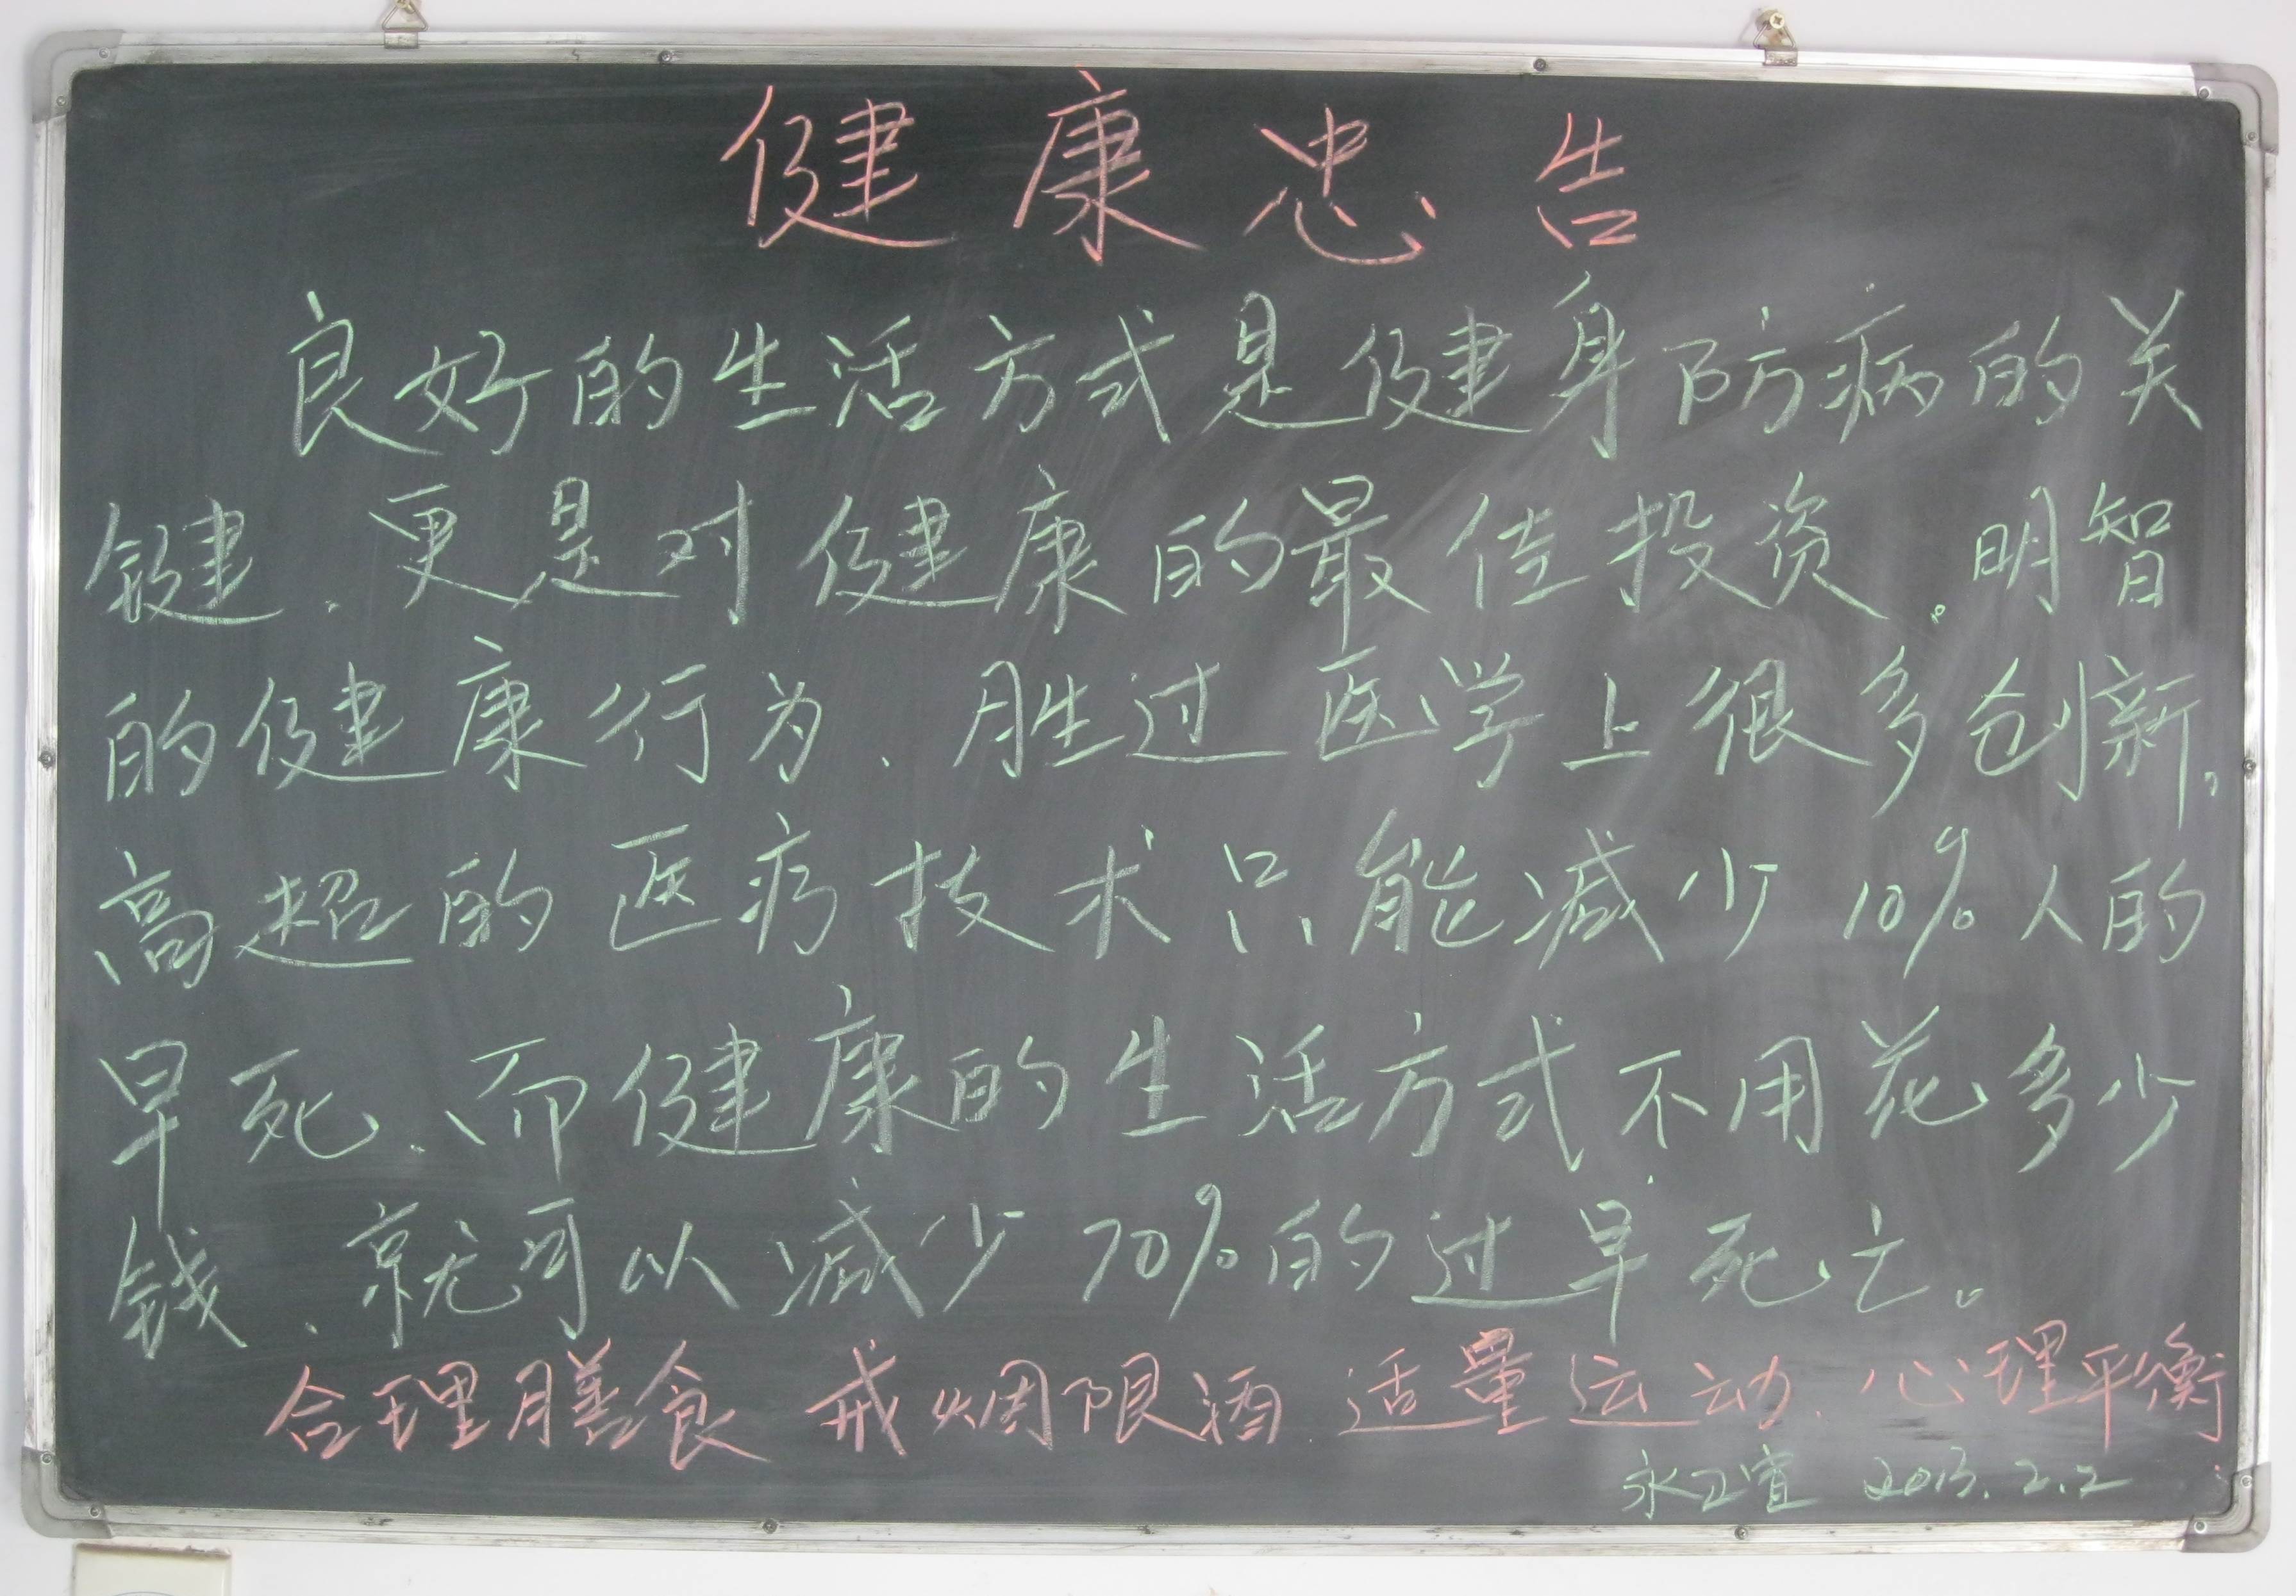 健康忠告
良好的生活方式是健身防病的关
键、更是对健康的最佳投资。明智
的健康行为、胜过医学上很多创新。
高超的医疗技术只能减少10%人的
早死、而健康的生活方式不用花多少
钱、就可以减少70%的过早死亡。
合理膳食 戒烟限酒 适量运动、心理平衡
2013.2.2